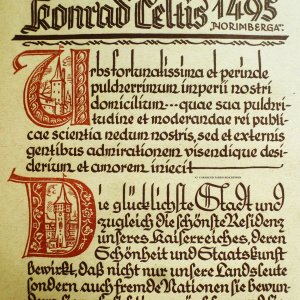 Konrad Celtis 1495
„NORIMBERGA"
Urbs fortunatissima et perinde
pulcherrimum imperii nostri
domicilium---quae sua pulchri-
tudine et moderandae rei publi-
cae scientia nedum nostris, sed et externis
gentibus admirationem visendique desi-
derium et amorem iniecit
Die glücklichste Stadt und
zugleich die schönste Residenz
unseres Kaiserreiches, deren
Schönheit und Staatskunst
bewirkt, daß nicht nur unsere Landsleute
sondern auch fremde Nationen sie bewun-